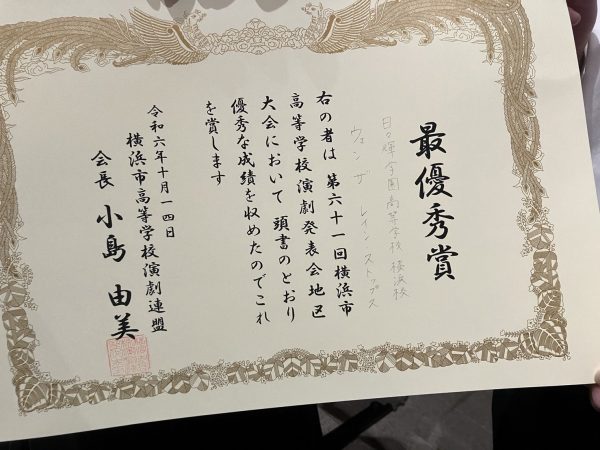 最優秀賞
日々輝学園高等学校 横浜校
ウェン ザ レイン ストップス
右の者は 第六十一回横浜市
高等学校演劇発表会地区
大会において 頭書のとおり
優秀な成績を収めたのでこれ
を賞します
令和六年十月一四日
横浜市高等学校演劇連盟
会長 小島 由美